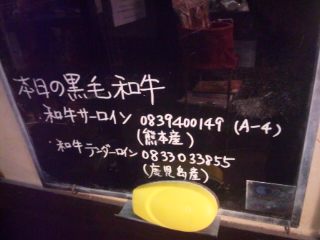 本日の黒毛和牛
・和牛サーロイン 0839400149 (A-4)
(熊本産)
・和牛テンダーロイン 0833033855
(鹿児島産)